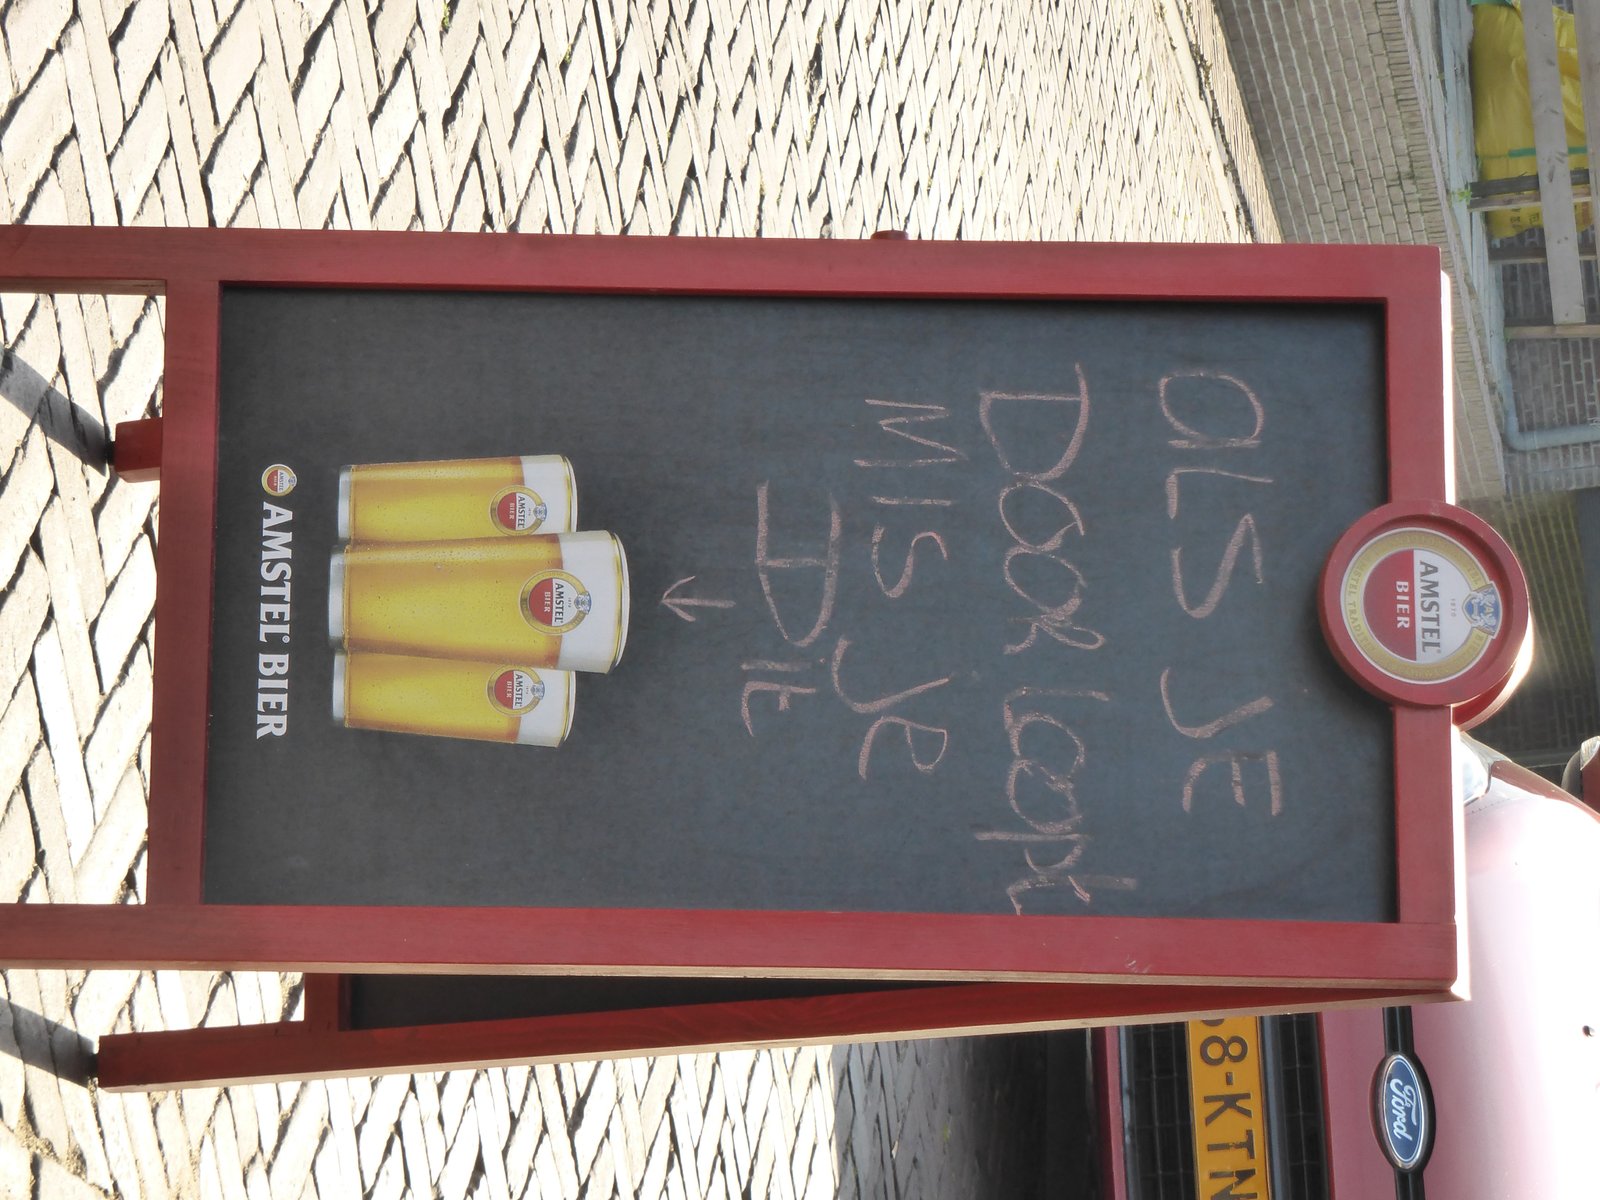 AMSTEL
BIER
ALS JE
DOOR LOOPT
MIS JE
DIT
AMSTEL
BIER
AMSTEL
BIER
AMSTEL
BIER
AMSTEL BIER
8-KTN
Ford